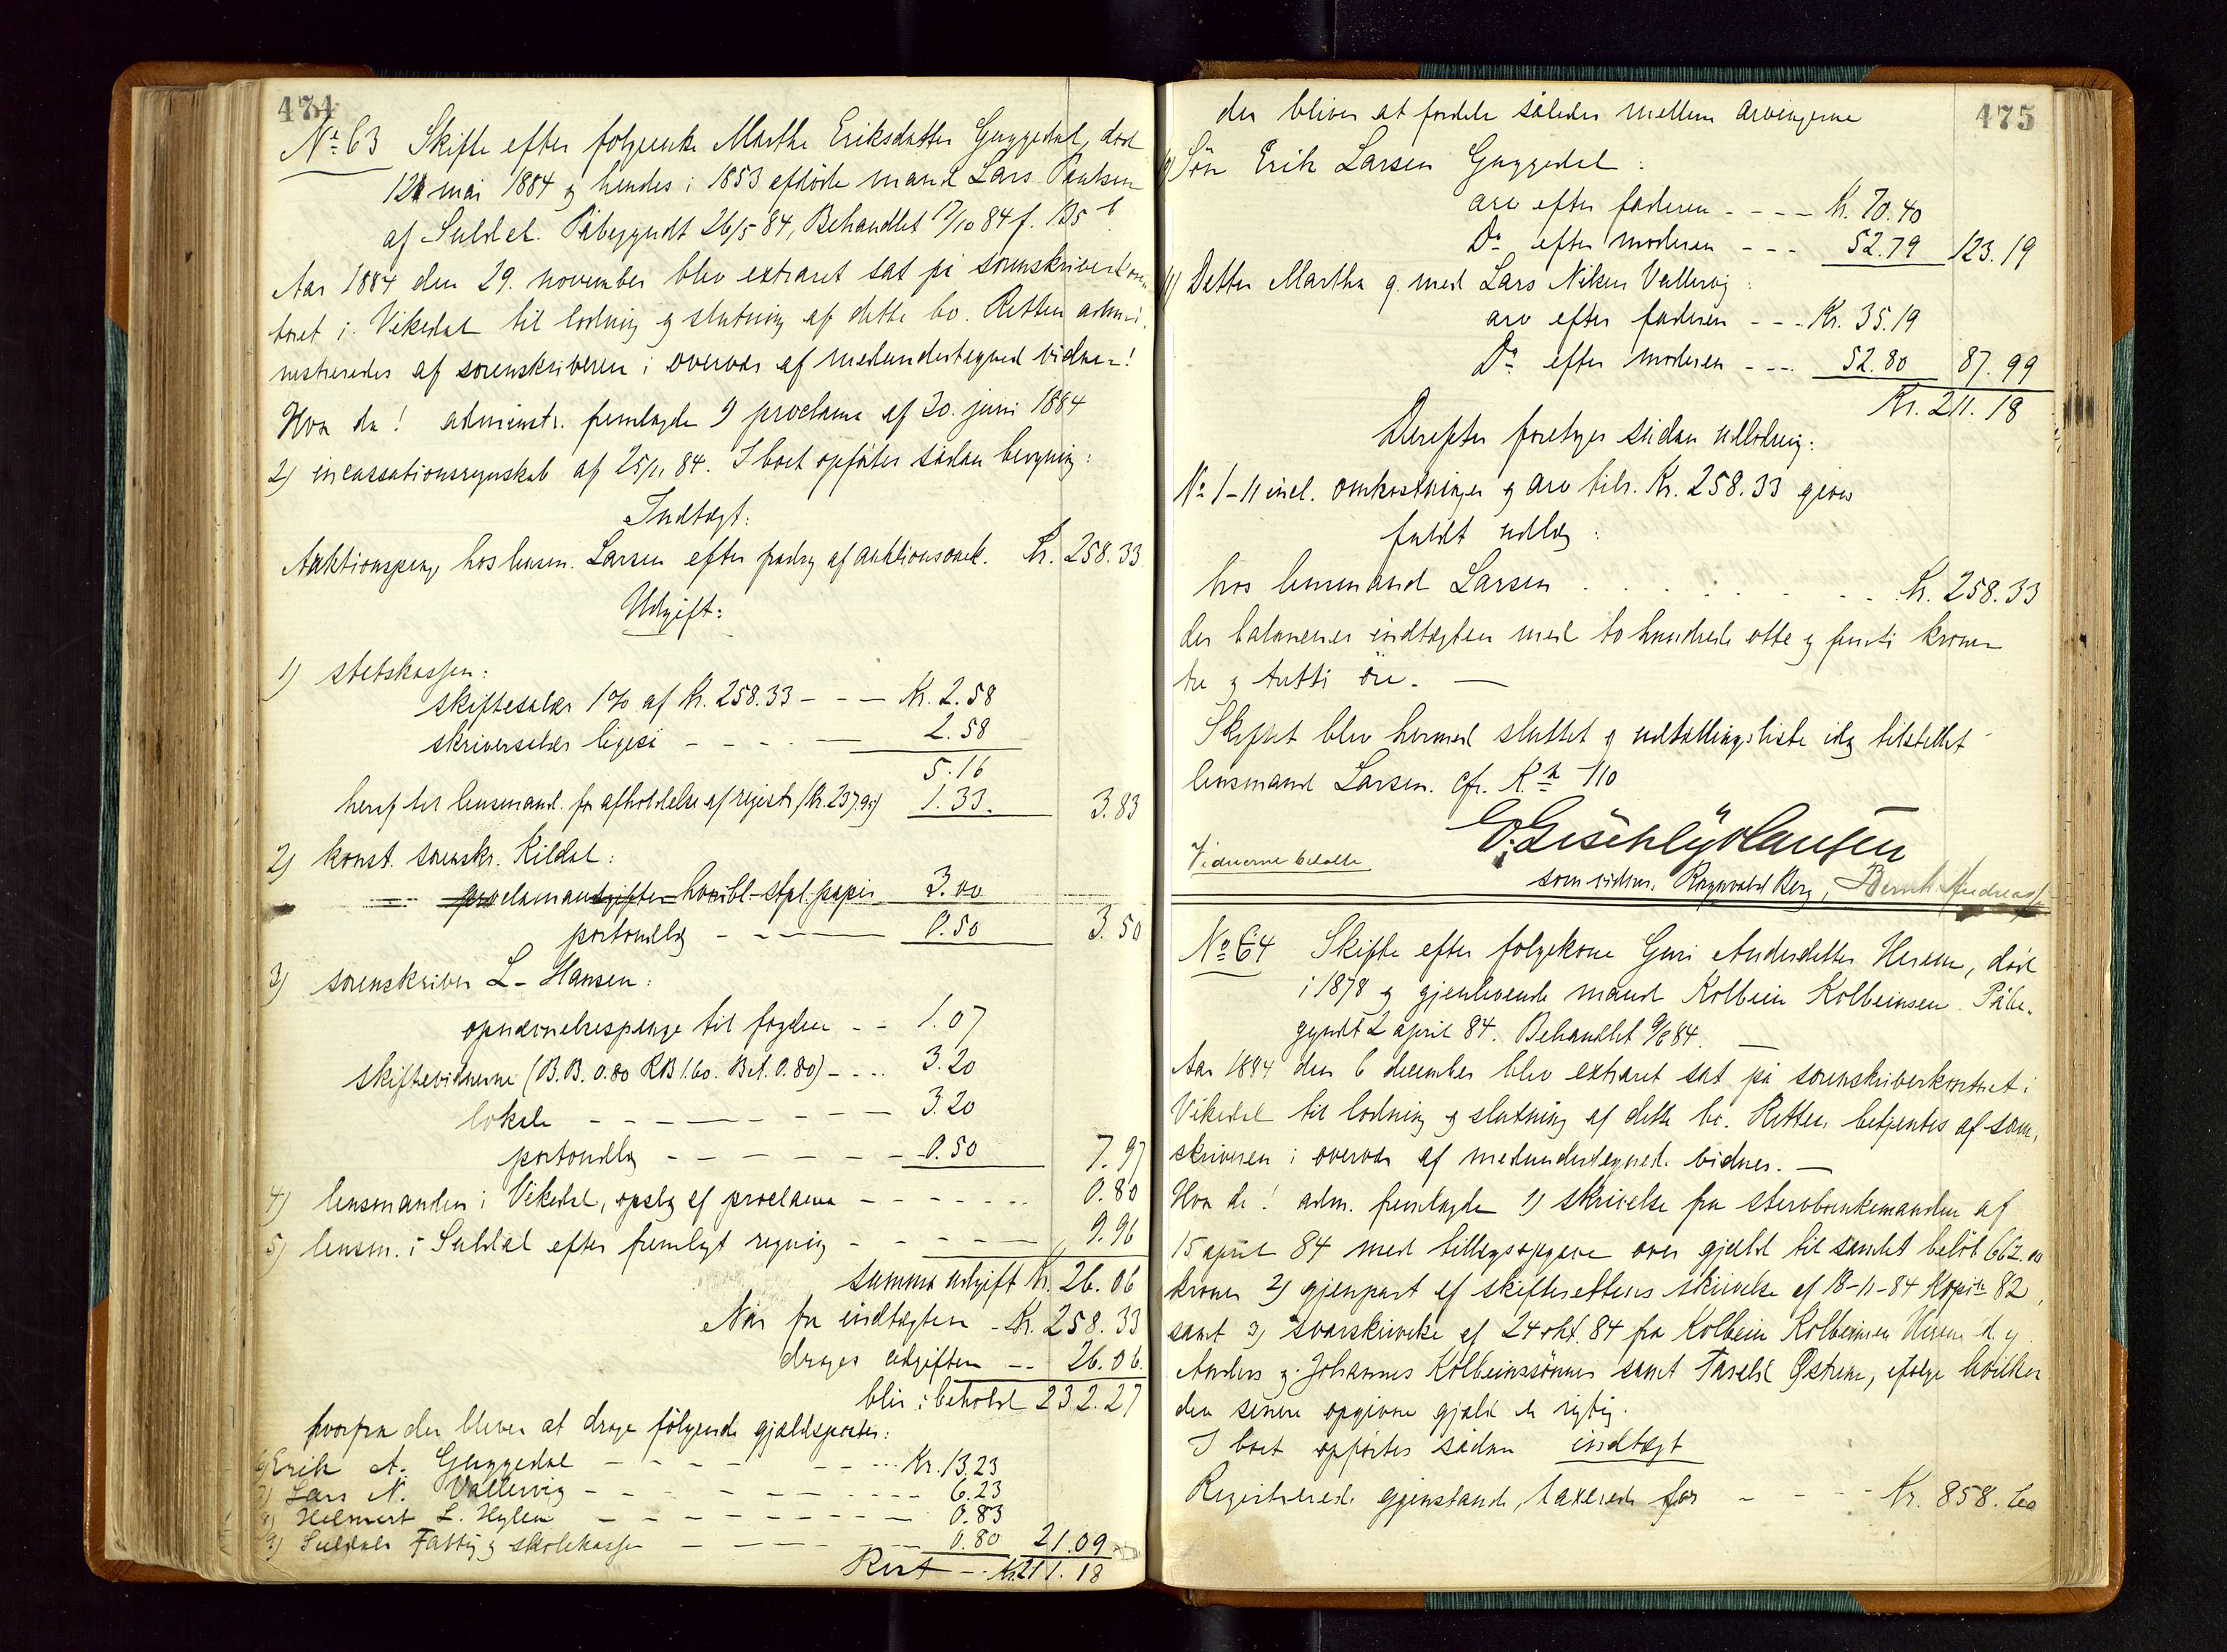 474
No 63 Skifte efter folgeenke Marthe Eriksdatter Guggedal, död
12 mai 1884 og hendes i 1853 afdöde mand Lars Paulsen
af Suldal. Påbegyndt 26/5 84, Behandlet 17/10 84 f. 135 b
Aar 1884 den 29. november blev extraret sat på sorenskriverkon-
toret i Vikedal til lodning og slutning af dette bo. Retten admi-
nistreredes af sorenskriveren i overvær af medundertegned vidner!
Hvor da! administr. fremlagde 1) proclama af 20. juni 1884
2) incassationsregnskab af 25/11 84. I boet opförtes sådan beregning:
Indtægt:
Auktionspenge hos lensm. Larsen efter fradrag af auktionsomk. Kr. 258.33
Udgift:
1) statskassen:
skiftesalær 1% af Kr. 258.33 - - - Kr. 2.58
skriversalær ligeså - - - - 2.58
5.16
heraf til lensmand. for afholdelse af registr. (Kr. 237.95) 1.33. 3.83
2) konst. sorenskr. Kildal:
proclamaudgifter stpl. papir 3.00
portoudlæg - - - - 0.50 3.50
3) sorenskriver L- Hansen:
opnævnelsespenge til fogden - - 1.07
skiftevidnerne (B.B. 0.80 RB 1.60. B.A. 0.80) - - - 3.20
lokale - - - - - - - 3.20
portoudlæg - - - - - - 0.50 7.97
4) lensmanden i Vikedal, opslag af proclama - - - - - - 0.80
5) lensm. i Suldal efter fremlagt regning - - - - - 9.96
summa udgift Kr. 26.06
Når fra indtægten - Kr. 258.33
drages udgiften - - 26.06.
bliv i behold 232.27
hvorfra der bliver at drage fölgende gjældsposter:
6) Erik A. Guggedal - - - - - - Kr. 13.23
7) Lars N. Vallervig - - - - - - 6.23
8) Helmert L. Hylen - - - - - - 0.83
9) Suldals Fattig og skolekasse - - - - 0.80 21.09
Rest - - Kr. 211.18
475
der bliver at fordele således mellem arvingerne
10) Sön Erik Larsen Guggedal:
arv efter faderen - - - - Kr. 70.40
Do efter moderen - - - 52.79 123.19
11) Datter Martha g. med Lars Nilsen Vallervig:
arv efter faderen - - - Kr. 35.19
Do efter moderen - - - 52.80 87.99
Kr. 211.18
Derefter foretoges sådan udlodning:
No 1-11 incl. omkostninger og arv tils. Kr. 258.33 gives
fuldt udlæg:
hos lensmand Larsen . . . . . . . Kr. 258.33
der balancerer indtægten med to hundrede otte og femti kroner
tre og tretti öre. —
Skiftet blev hermed sluttet og udbetalingsliste idag tilstillet
lensmand Larsen. cfr. K. 110
Lansen
Vidnerne betalte
som vidne. Ragnvald Berg, Bernh. Andreas
No 64 Skifte efter folgekone Guri Andersdatter Hereim, död
i 1878 og gjenlevende mand Kolbein Kolbeinsen. Påbe-
gyndt 2 april 84. Behandlet 9/6 84. —
Aar 1884 den 6 december blev extraret sat på sorenskriverkontoret i
Vikedal til lodning og slutning af dette bo. Retten betjentes af soren-
skriveren i overvær af medundertegnede vidner. —
Hvor da! adm. fremlagde 1) skrivelse fra stervboenkemanden af
15 april 84 med tillægsopgave over gjæld til samlet belöb 662.00
kroner 2) gjenpart af skifterettens skrivelse af 18-11-84 Kopi 82,
samt 3) svarskrivelse af 24 okt. 84 fra Kolbein Kolbeinsen Hereim d. y.
Anders og Johannes Kolbeinssönner samt Tarald Østrem, ifölge hvilken
den senere opgivne gjæld er rigtig.
I boet opförtes sådan indtægt
Registrerede gjenstande, taxerede for - - - - Kr. 858.60